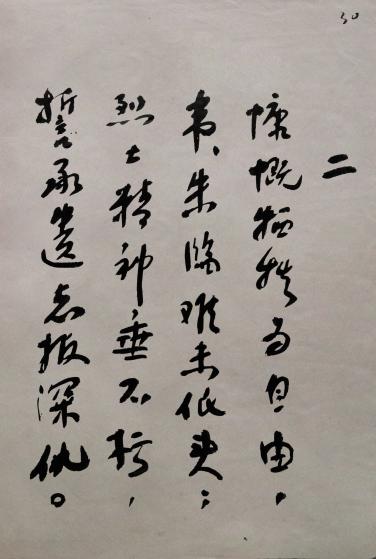 50
二
慷慨牺牲为自由，
韦、朱临难未低头；
烈士精神垂不朽，
誓承遗志报深仇。